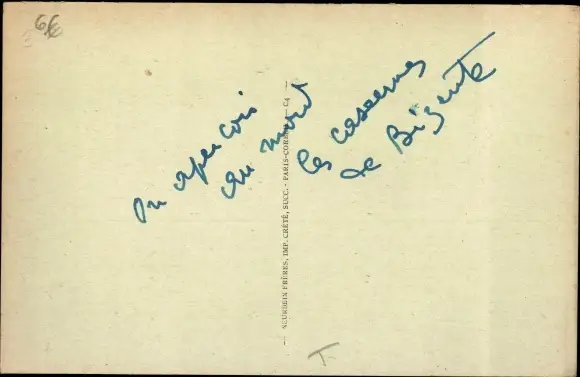 66
on aperçoit
au nord
les casernes
de Bizerte
NEURDEIN FRÈRES, IMP. CRÉTÉ, SUCC. - PARIS-CORBEIL - C4
T